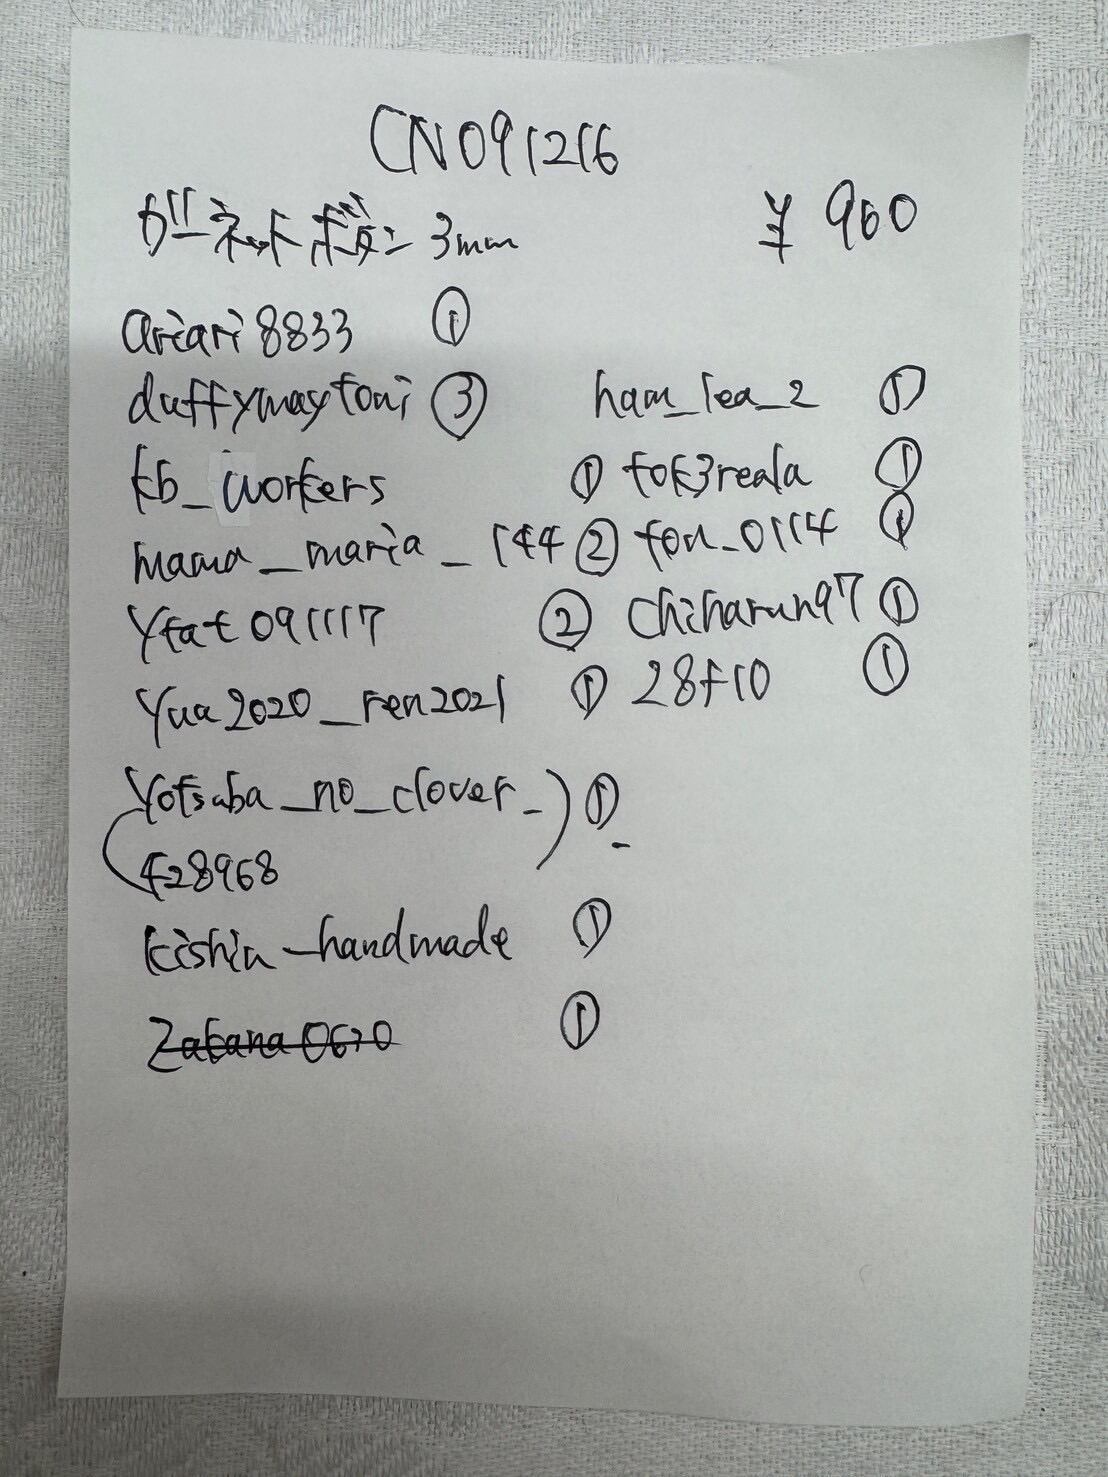 CN091216
ガーネットボタン 3mm ¥ 960
ariari8833 ①
duffymaytoni ③
kb_workers ①
mama_maria_144 ②
ytat091117 ②
yua2020_ren2021 ①
yotsuba_no_clover_ ①
428968
kishin_handmade ①
Zakana0670 ①
ham_lea_2 ①
tok3reala ①
ton_0114 ①
chiharun97 ①
28f10 ①